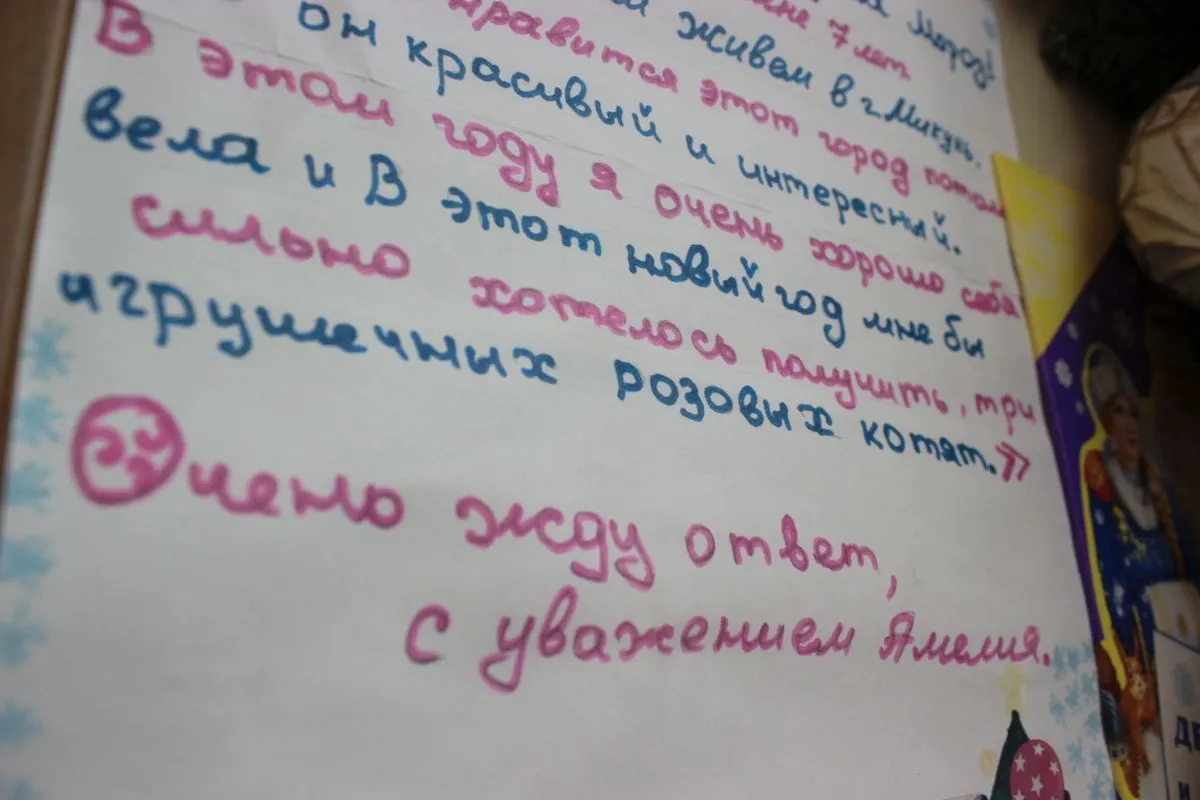 Мороз!
мне 7 лет
живем в г. Микунь.
нравится этот город потом
он красивый и интересный.
В этом году я очень хорошо себя
вела и В этот новый год мне бы
сильно хотелось получить, три
игрушечных розовых котят.»
Очено жду ответ,
с уважением Амелия.